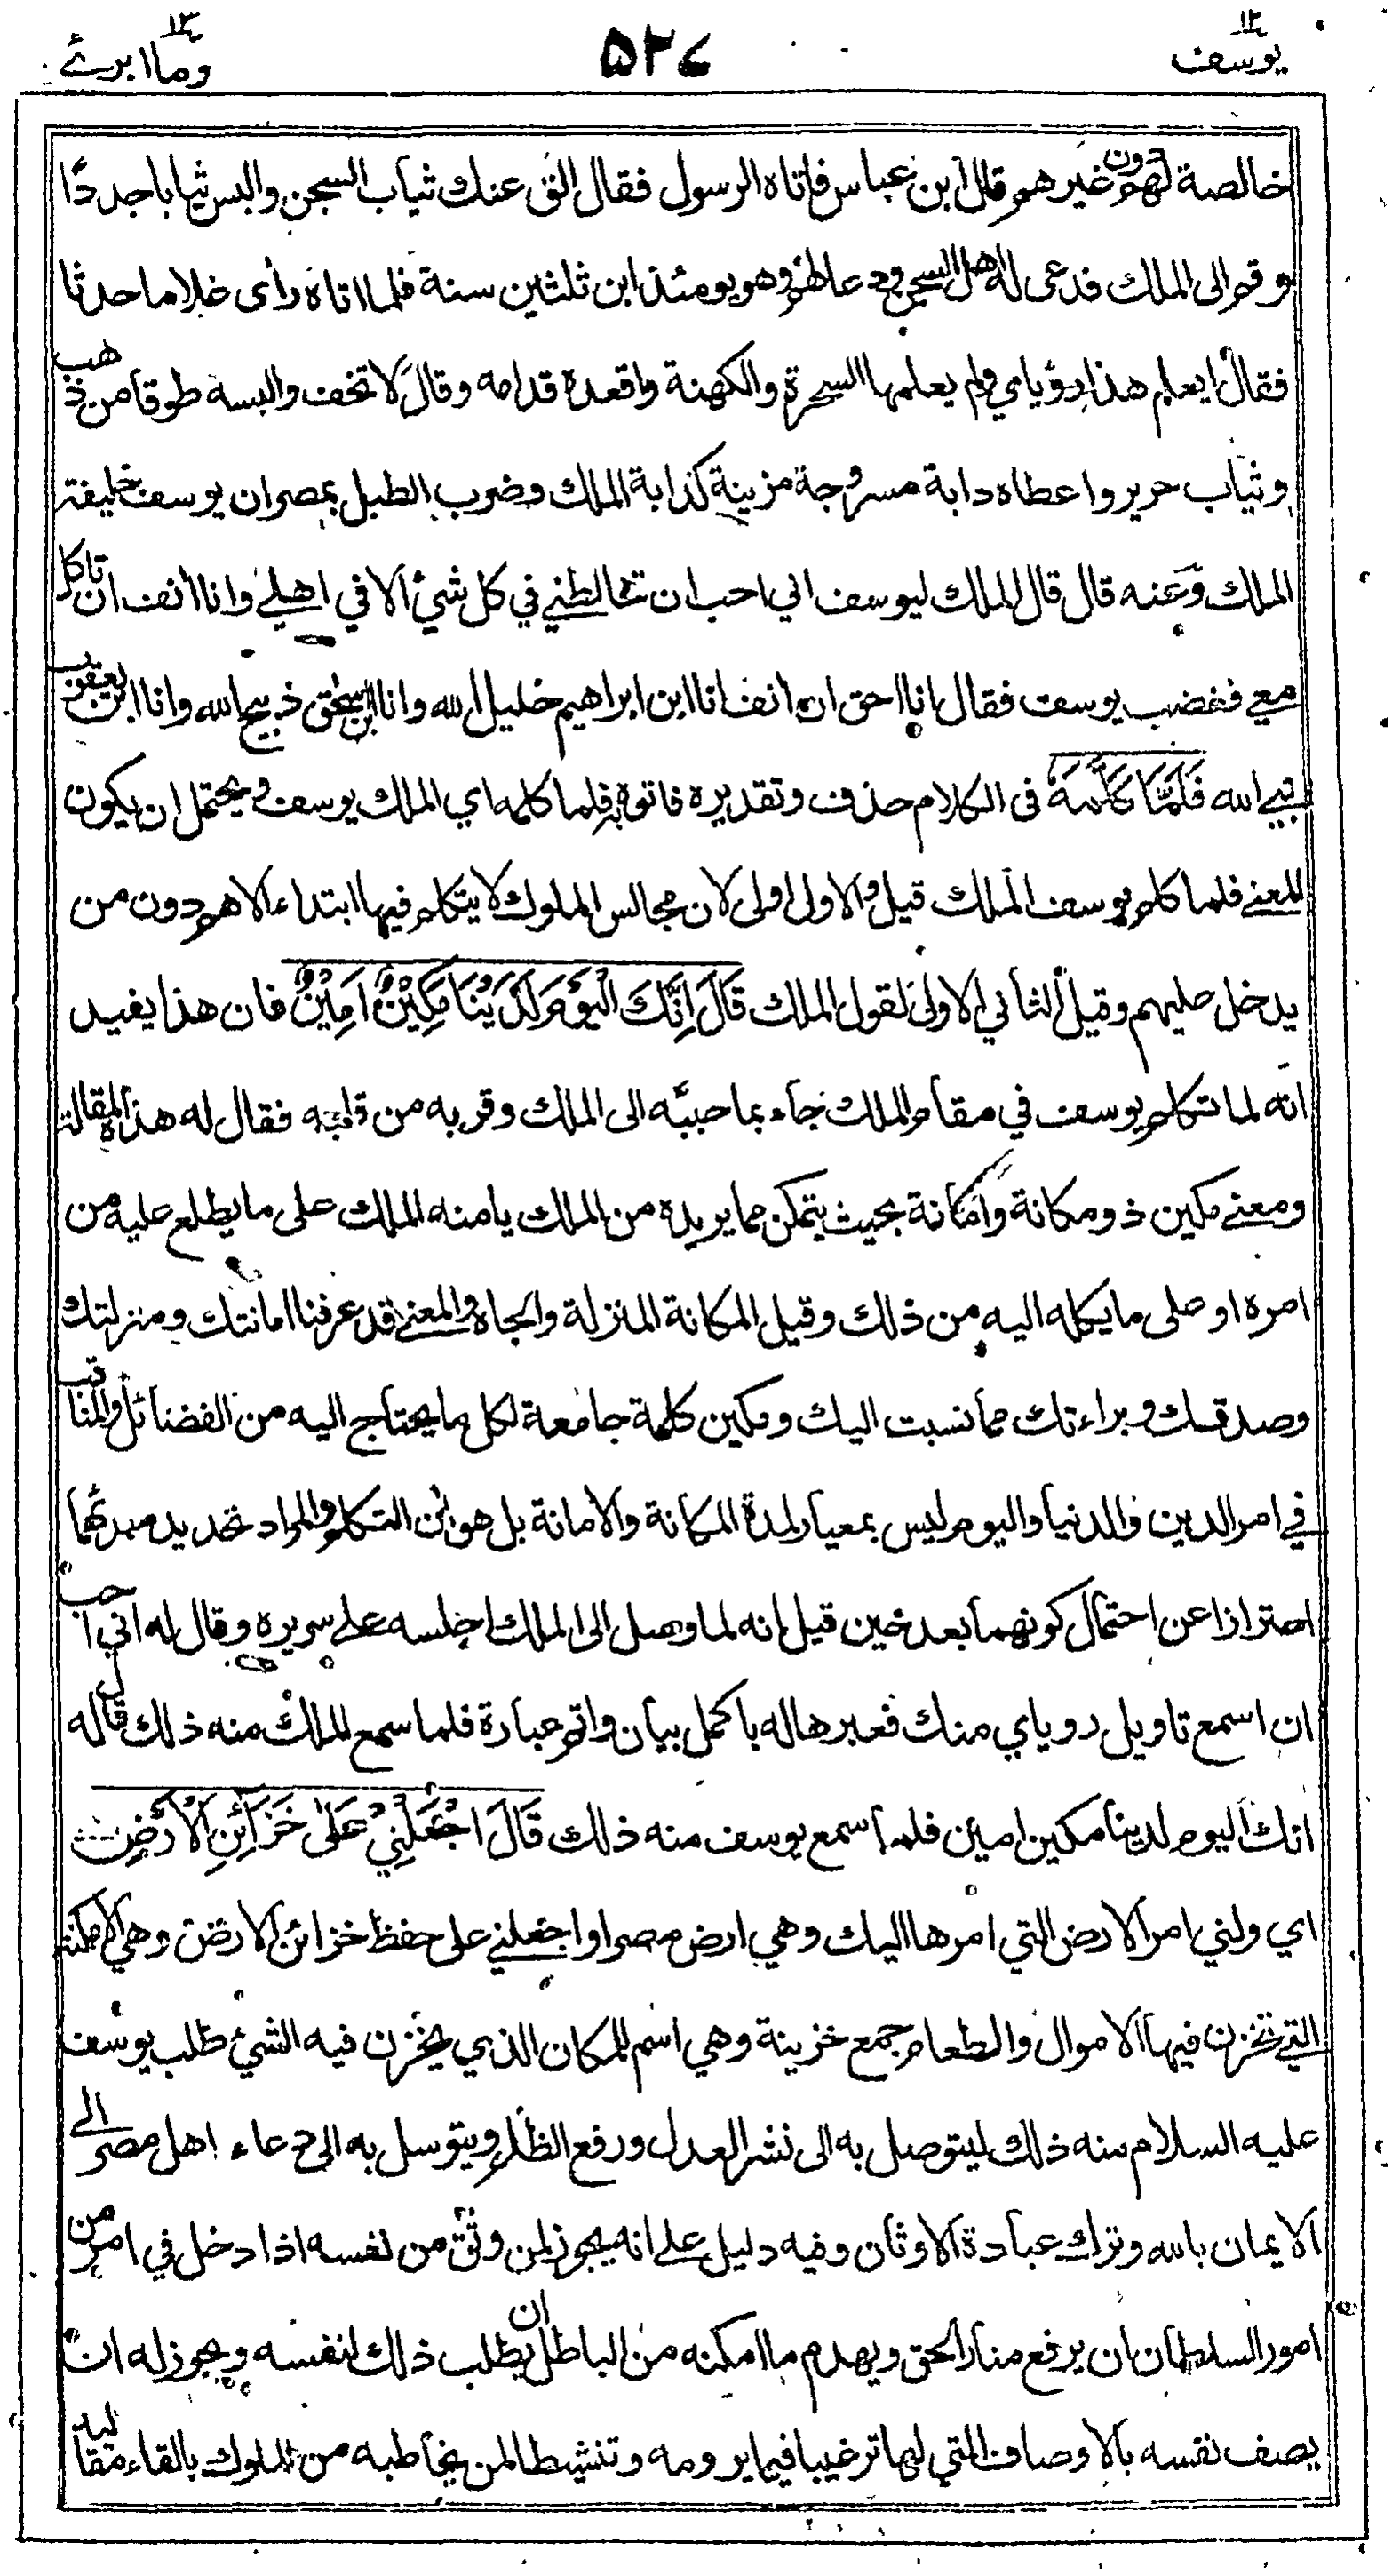 يوسف ١٢
٥٢٧
وما ابرئ ١٣
خالصة لهم دون غيرهم قال ابن عباس فاتاه الرسول فقال الق عنك ثياب السجن والبس ثيابا جددًا
وقم الى الملك فدعى له اهل السجن ودعا لهم وهو يومئذ ابن ثلثين سنة فلما اتاه رأى غلاما حدثا
فقال ايعلم هذا رؤياي ولم يعلمها السحرة والكهنة واقعده قدامه وقال لا تخف والبسه طوقا من ذهب
وثياب حرير واعطاه دابة مسروجة مزينة كدابة الملك وضرب الطبل بمصر ان يوسف خليفة
الملك وعنه قال قال الملك ليوسف اني احب ان تخالطني في كل شيء الا في اهلي وانا انف ان تاكل
معي فغضب يوسف فقال انا احق ان انف انا ابن ابراهيم خليل الله وانا ابن اسحق ذبيح الله وانا ابن يعقوب
نبي الله فَلَمَّا كَلَّمَهُ فى الكلام حذف وتقديره فاتوه به فلما كلمه اي الملك يوسف ويحتمل ان يكون
المعنى فلما كلم يوسف الملك قيل والاول اولى لان مجالس الملوك لا يتكلم فيها ابتداء الا هم دون من
يدخل عليهم وقيل الثاني الاولى لقول الملك قَالَ اِنَّكَ الْيَوْمَ لَدَيْنَا مَكِيْنٌ اَمِيْنٌ فان هذا يفيد
انه لما تكلم يوسف في مقام الملك جاء بما حببه الى الملك وقربه من قلبه فقال له هذه المقالة
ومعنى مكين ذو مكانة وامانة بحيث يتمكن مما يريده من الملك يامنه الملك على ما يطلع عليه من
امره او على ما يكله اليه من ذلك وقيل المكانة المنزلة والجاه والمعنى قد عرفنا امانتك ومنزلتك
وصدقك وبراءتك مما نسبت اليك ومكين كلمة جامعة لكل ما يحتاج اليه من الفضائل والمناقب
في امر الدين والدنيا واليوم ليس بمعيار لمدة المكانة والامانة بل هو آن التكلم والمراد تحديد مبدئهما
احترازا عن احتمال كونهما بعد حين قيل انه لما وصل الى الملك اجلسه على سريره وقال له اني احب
ان اسمع تاويل روياي منك فعبرها له باكمل بيان واتم عبارة فلما سمع الملك منه ذلك قال له
انك اليوم لدينا مكين امين فلما سمع يوسف منه ذلك قَالَ اجْعَلْنِيْ عَلٰى خَزَآئِنِ الْاَرْضِ
اي ولني امر الارض التي امرها اليك وهي ارض مصر او اجعلني على حفظ خزائن الارض وهي الامكنة
التي تخزن فيها الاموال والطعام جمع خزينة وهي اسم للمكان الذي يخزن فيه الشيء طلب يوسف
عليه السلام منه ذلك ليتوصل به الى نشر العدل ورفع الظلم ويتوسل به الى دعاء اهل مصر الى
الايمان بالله وترك عبادة الاوثان وفيه دليل على انه يجوز لمن وثق من نفسه اذا دخل في امر من
امور السلطان ان يرفع منار الحق ويهدم ما امكنه من الباطل ان يطلب ذلك لنفسه ويجوز له ان
يصف نفسه بالاوصاف التي لها ترغيبا فيما يرومه وتنشيطا لمن يخاطبه من الملوك بالقاء مقاليد